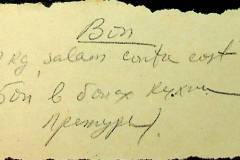 Bon
kg salam conta cost
бон в бонех кухни
претуре)